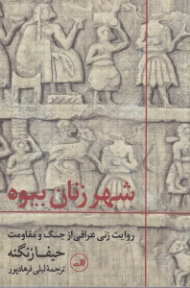 شهر زنان بیوه
روایت زنی عراقی از جنگ و مقاومت
حیفا زنگنه
ترجمهٔ لیلی فرهادپور
ثالث